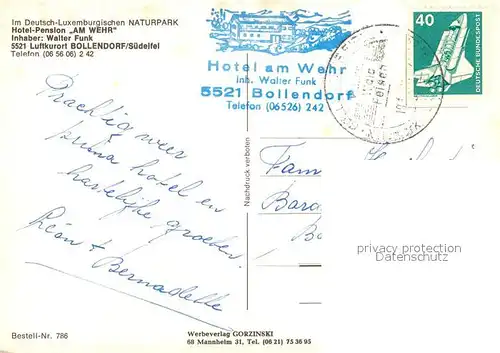 Im Deutsch-Luxemburgischen NATURPARK
Hotel-Pension „AM WEHR"
Inhaber: Walter Funk
5521 Luftkurort BOLLENDORF/Südeifel
Telefon (06 56 06) 2 42
Hotel am Wehr
Inh. Walter Funk
5521 Bollendorf
Telefon (06526) 242
40
DEUTSCHE BUNDESPOST
Prachtig weer
prima hotel en
hartelijke groeten.
Léon & Bernadette
Nachdruck verboten
Fam
privacy protection
Datenschutz
Bestell-Nr. 786
Werbeverlag GORZINSKI
68 Mannheim 31, Tel. (06 21) 75 36 95